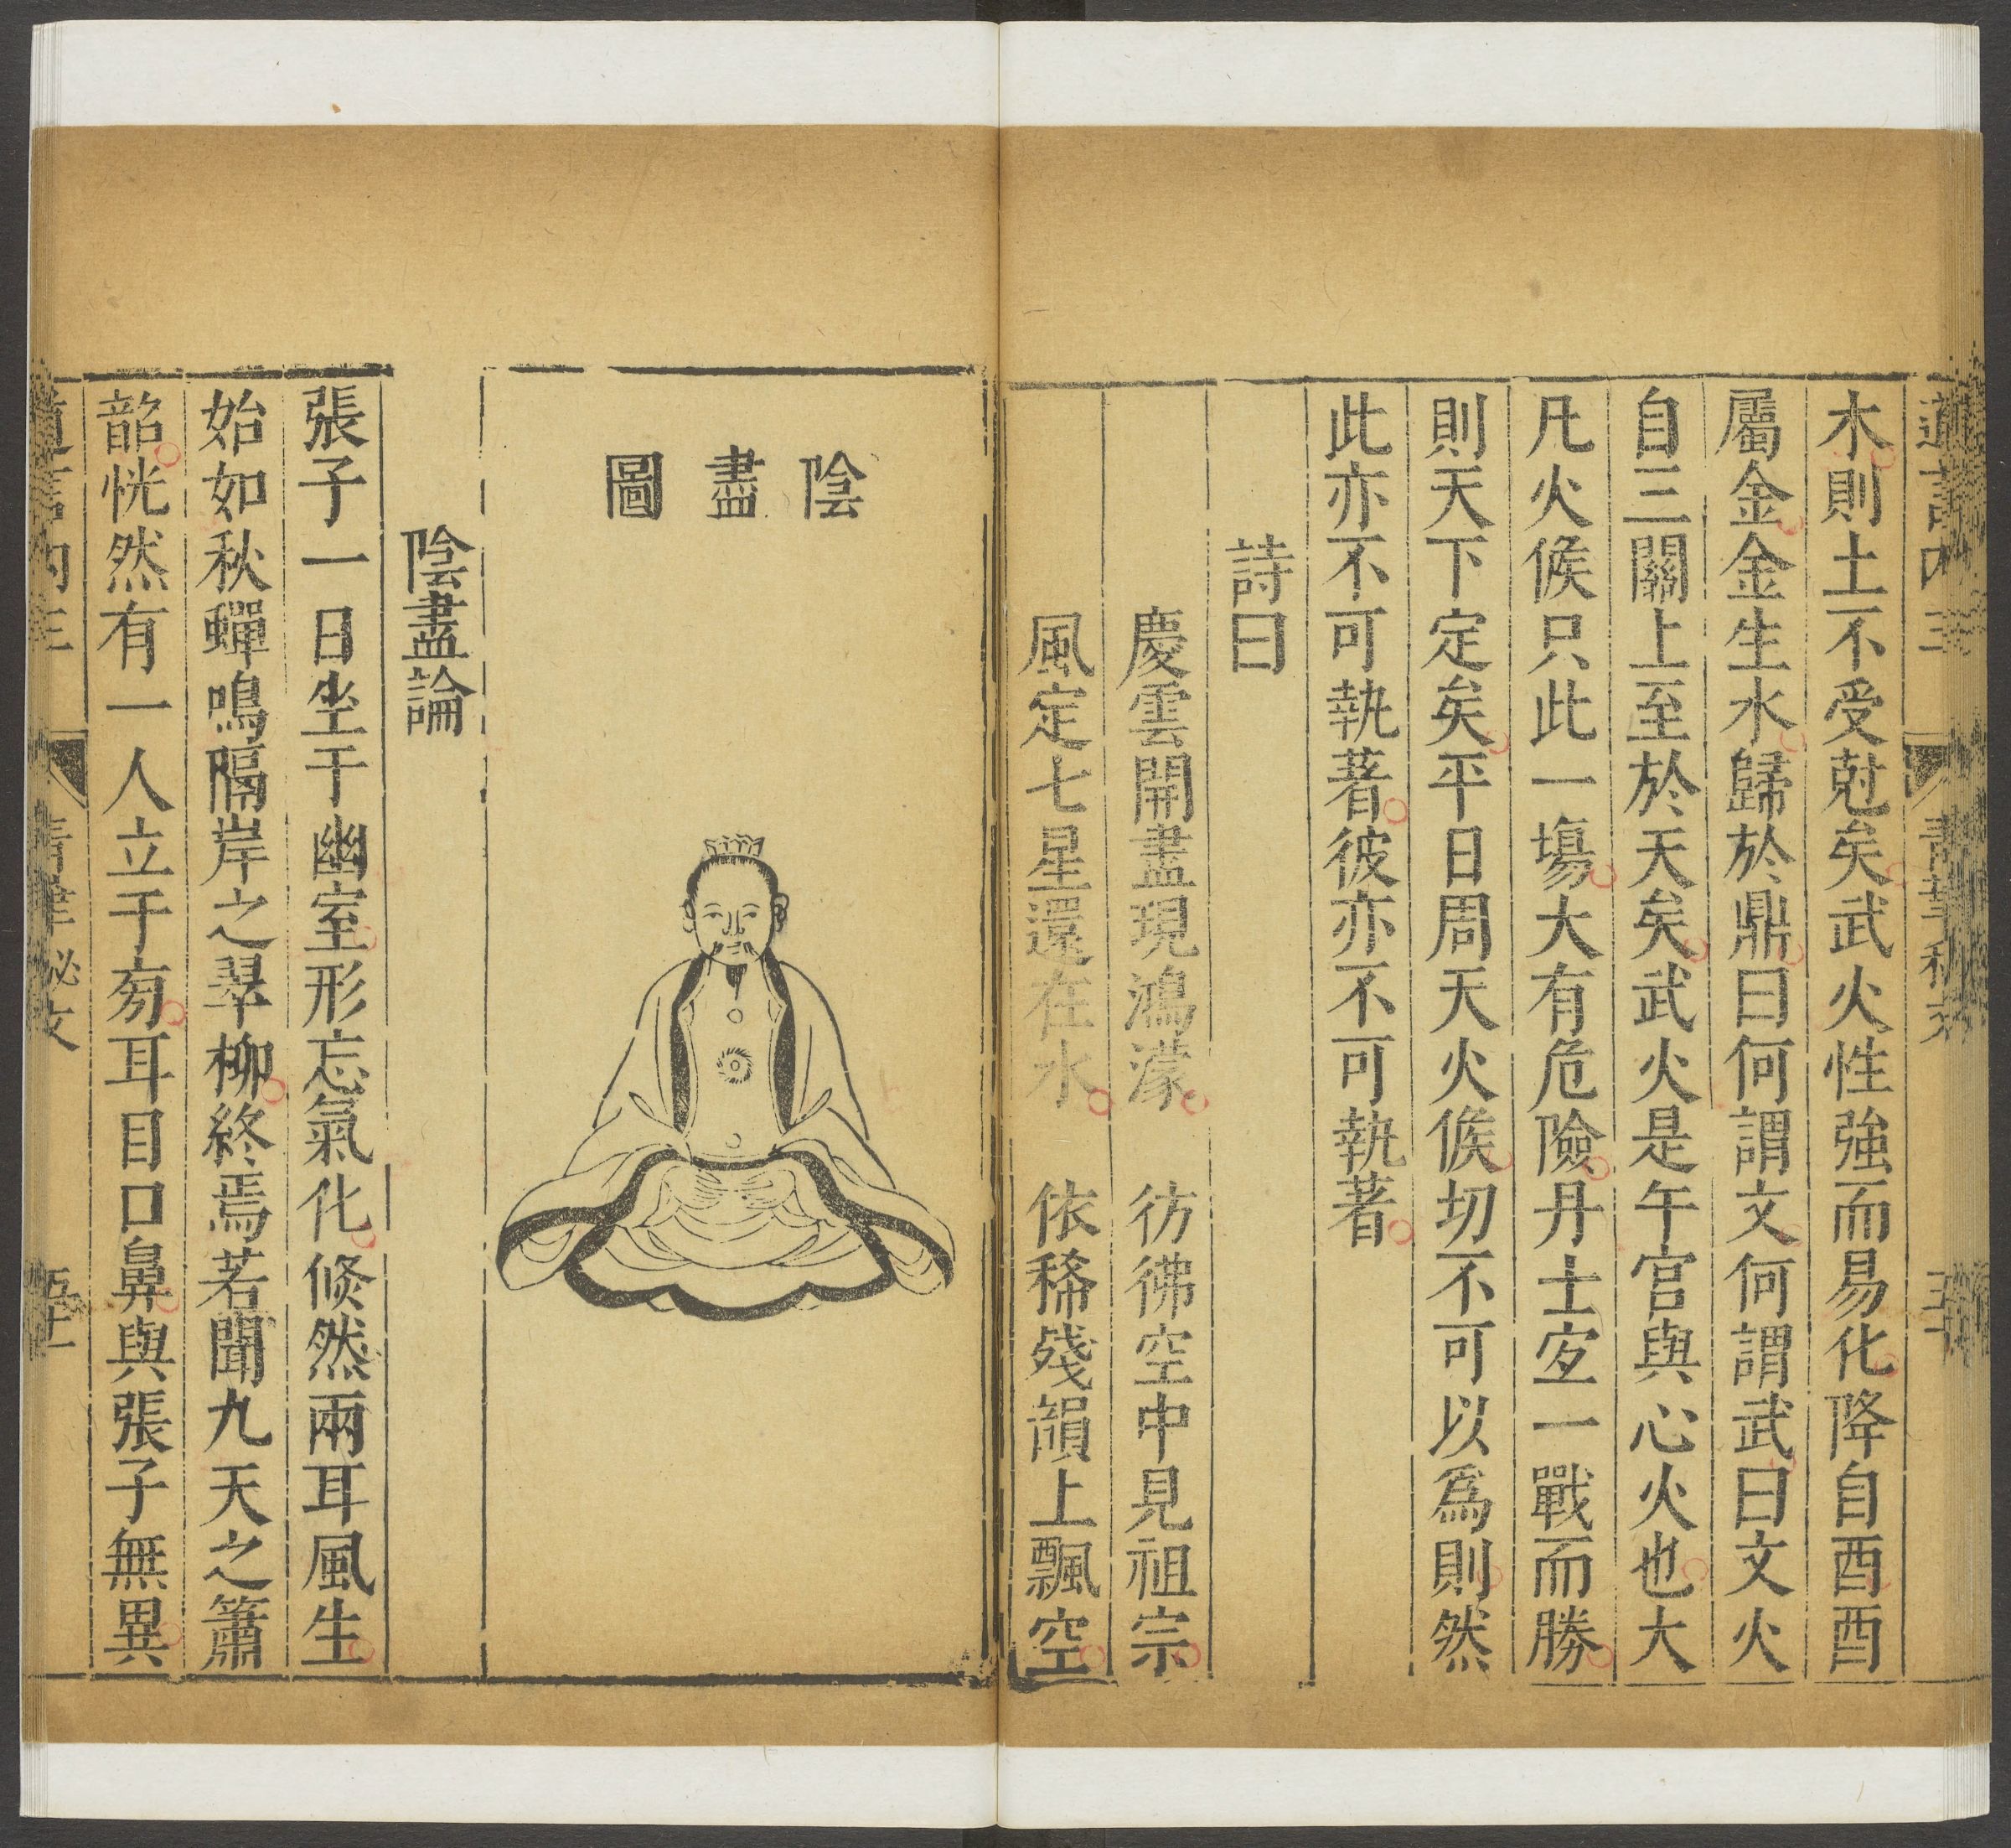 木則土不受尅矣武火性強而易化降自酉酉
屬金金生水歸於鼎曰何謂文何謂武曰文火
自三關上至於天矣武火是午宫與心火也大
凡火候只此一塲大有危險丹士𡧛一戰而勝
則天下定矣平日周天火候切不可以爲則然
此亦不可執著彼亦不可執著
詩曰
慶雲開盡現鴻濛 彷彿空中見祖宗
風定七星還在水 依稀殘韻上飄空
陰盡圖
陰盡論
張子一日坐于幽室形忘氣化倐然兩耳風生
始如秋蟬鳴隔岸之翠柳終焉若聞九天之簫
韶恍然有一人立于㫄耳目口鼻與張子無異
道言內三 青華秘文